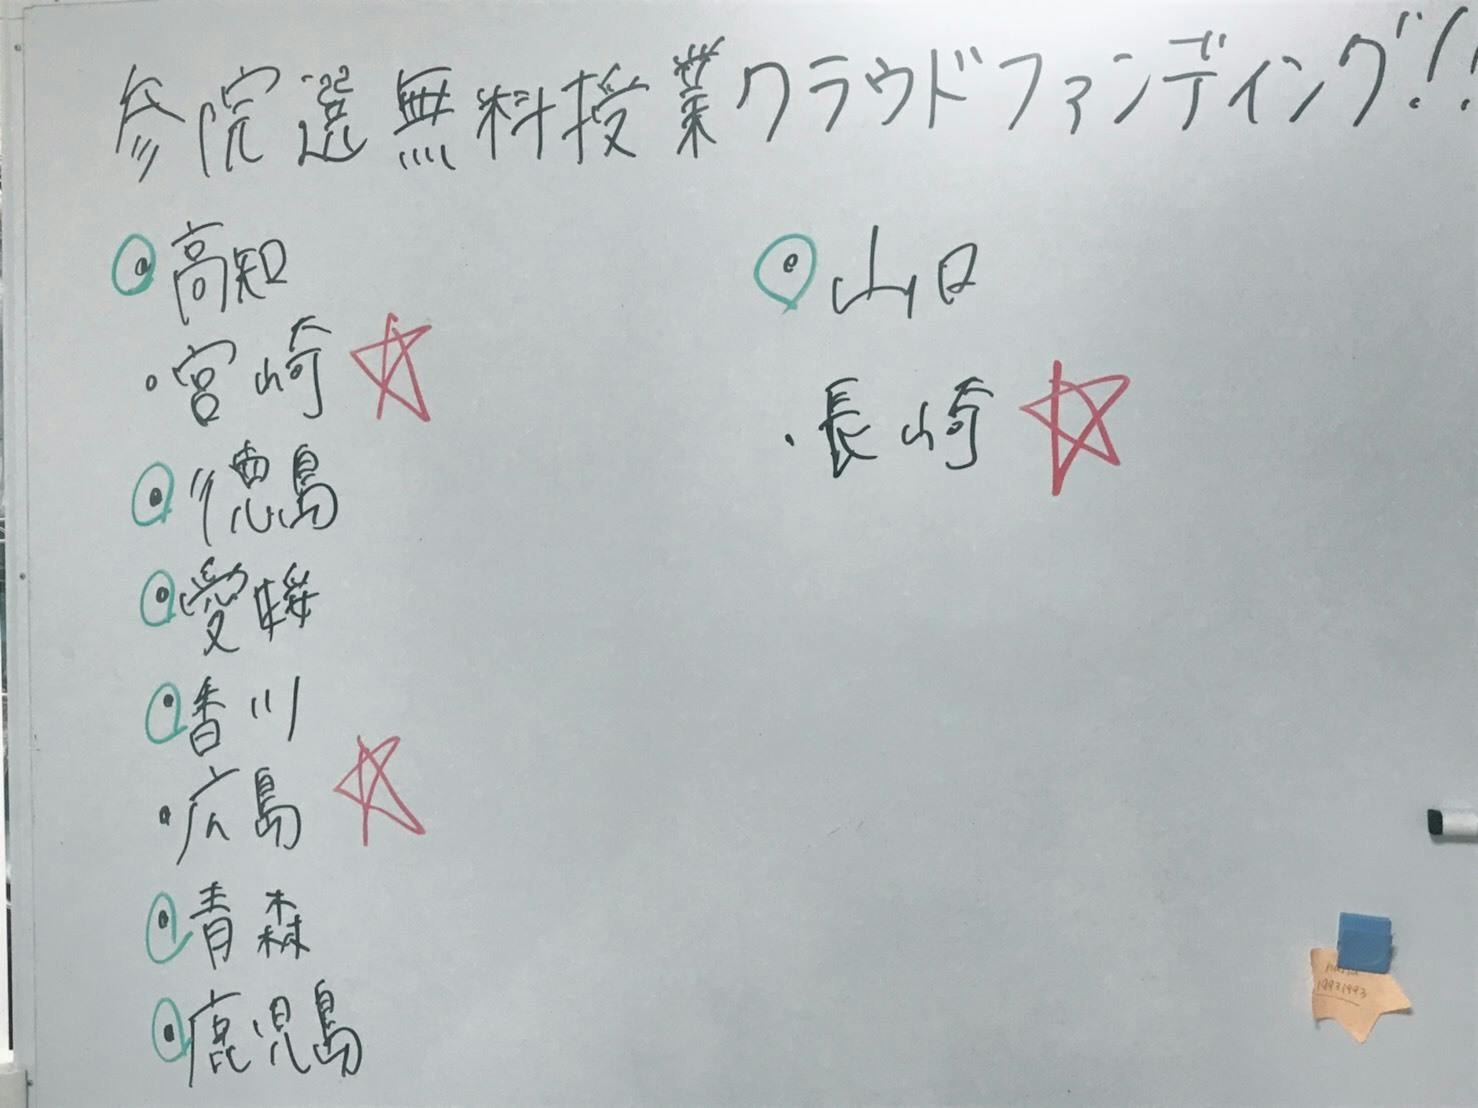 参院選無料授業クラウドファンディング!!
高知
・宮崎
徳島
愛媛
香川
・広島
青森
鹿児島
山口
・長崎
19931993